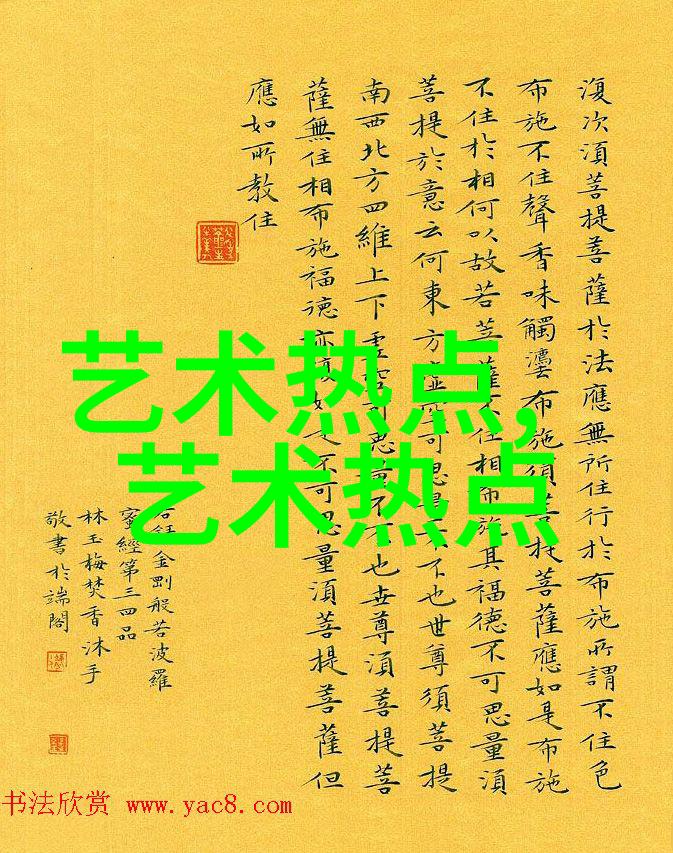 復次湏菩提菩薩於法應無所住行於布施所謂不住色
布施不住聲香味觸灋布施須菩提菩薩應如是布施
不住於相何以故若菩薩不住相布施其福德不可思量湏
菩提於意云何東方虛空可思不也世尊須菩提
南西北方四維上下虛空可思量不不也世尊湏菩提菩
薩無住相布施福德亦復如不可思量湏菩提菩薩但
應如所教住
金剛般若波羅
蜜經第三四品
林玉梅焚香沐手
敬書於端閣
艺术热点,
艺术热点
书法欣赏 www.yac8.com